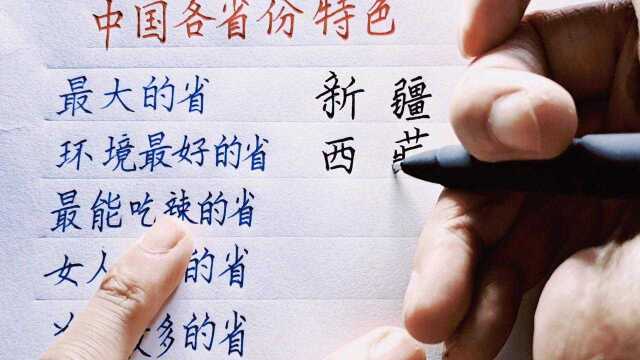 中国各省份特色
最大的省 新疆
环境最好的省 西
最能吃辣的省
女人的省
多的省